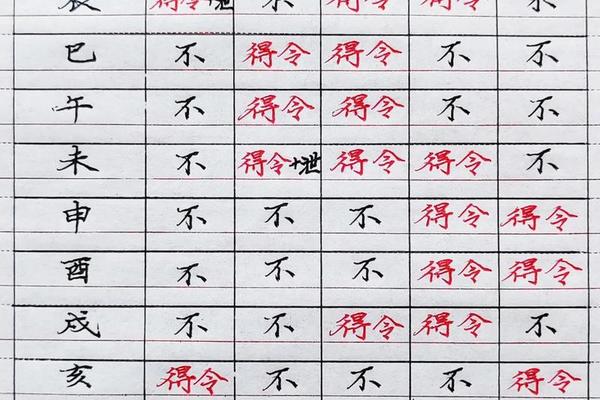 辰 得令+泄 不 得令 得令 不
巳 不 得令 得令 不 不
午 不 得令 得令 不 不
未 不 得令+泄 得令 得令 不
申 不 不 不 得令 得令
酉 不 不 不 得令 得令
戌 不 不 得令 得令 不
亥 得令 不 不 不 得令